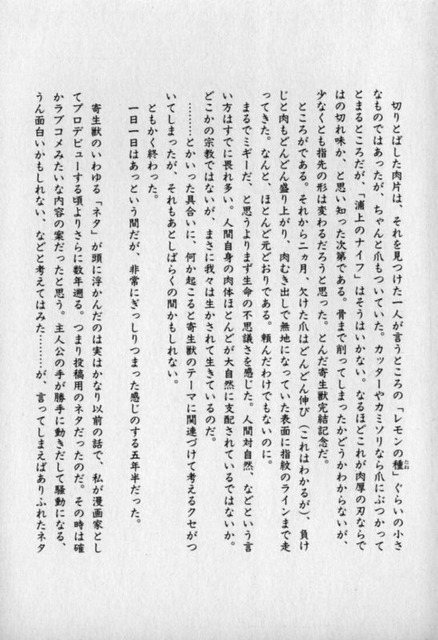 切りとばした肉片は、それを見つけた一人が言うところの「レモンの種」ぐらいの小さ
なものではあったが、ちゃんと爪もついていた。カッターやカミソリなら爪にぶつかって
とまるところだが、「浦上のナイフ」はそうはいかない。なるほどこれが肉厚の刃ならで
はの切れ味か、と思い知った次第である。骨まで削ってしまったかどうかわからないが、
少なくとも指先の形は変わるだろうと思った。とんだ寄生獣完結記念だ。
ところがである。それから二ヵ月、欠けた爪はどんどん伸び（これはわかるが）、負け
じと肉もどんどん盛り上がり、肉むき出しで無地になっていた表面に指紋のラインまで走
ってきた。なんと、ほとんど元どおりである。頼んだわけでもないのに。
まるでミギーだ、と思うよりまず生命の不思議さを感じた。人間対自然、などという言
い方はすでに畏れ多い。人間自身の肉体ほとんどが大自然に支配されているではないか。
どこかの宗教ではないが、まさに我々は生かされて生きているのだ。
………とかいった具合いに、何か起こると寄生獣のテーマに関連づけて考えるクセがつ
いてしまったが、それもあとしばらくの間かもしれない。
ともかく終わった。
一日一日はあっという間だが、非常にぎっしりつまった感じのする五年半だった。
寄生獣のいわゆる「ネタ」が頭に浮かんだのは実はかなり以前の話で、私が漫画家とし
てプロデビューする頃よりさらに数年遡る。つまり投稿用のネタだったのだ。その時は確
かラブコメみたいな内容の案だったと思う。主人公の手が勝手に動きだして騒動になる、
うん面白いかもしれない、などと考えてはみた………が、言ってしまえばありふれたネタ